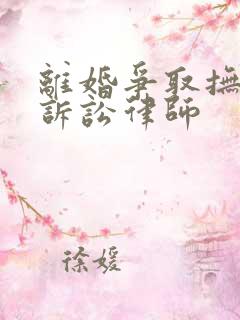 離婚爭取撫
訴訟律師
徐媛